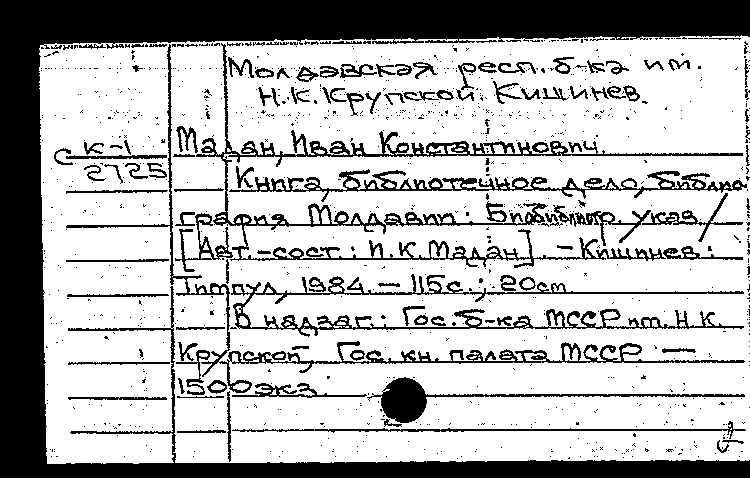 Молдавская респ. б-ка им.
Н.К.Крупской. Кишинев.
С К-1
2725
Мадан, Иван Константинович.
Книга, библиотечное дело, библио
графия Молдавии: Библиогр. указ.
[Авт.-сост.: И.К.Мадан]. - Кишинев:
Тимпул, 1984. - 115с.; 20см
В надзаг.: Гос. б-ка МССР им. Н.К.
Крупской, Гос. кн. палата МССР. —
1500экз.